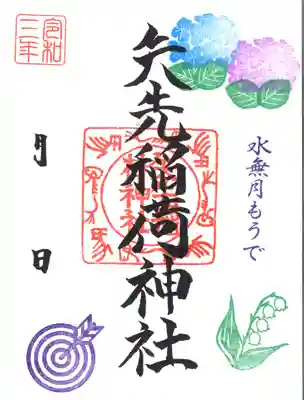 水無月もうで
矢先稲荷神社
令和
三年
月
日